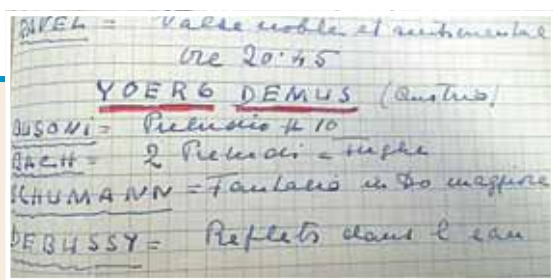 RAVEL = Valse nobles et sentimentale
Ore 20.45
YOERG DEMUS (Austria)
BUSONI = Preludio N 10
BACH = 2 Preludi e Fughe
SCHUMANN = Fantasia in Do maggiore
DEBUSSY = Reflets dans l eau